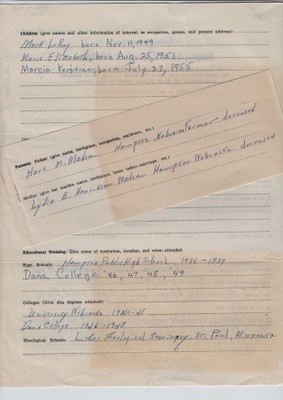 Children (give names and other information of interest, as occupation, spouse, and present address):
Mark LeRoy born Nov. 11, 1949
Marie Elizabeth, born Aug. 25, 1951
Marcia Kristine, born July 27, 1955
Parents: Father (give name, birthplace, occupation, residence, etc.)
Hans M. Madsen Hampton, Nebraska Farmer deceased
Mother (give her maiden name, birthplace, home before marriage, etc.)
Lydia B. Madsen Hampton Nebraska deceased
Educational Training: Give name of institution, location, and when attended.
High Schools: Hampton Public High School 1936 - 1939
Dana College '46, '47, '48, '49
Colleges (Give also degrees attained):
University Nebraska 1940-41
Dana College 1946-1948
Theological Schools: Luther Theological Seminary, St. Paul, Minnesota